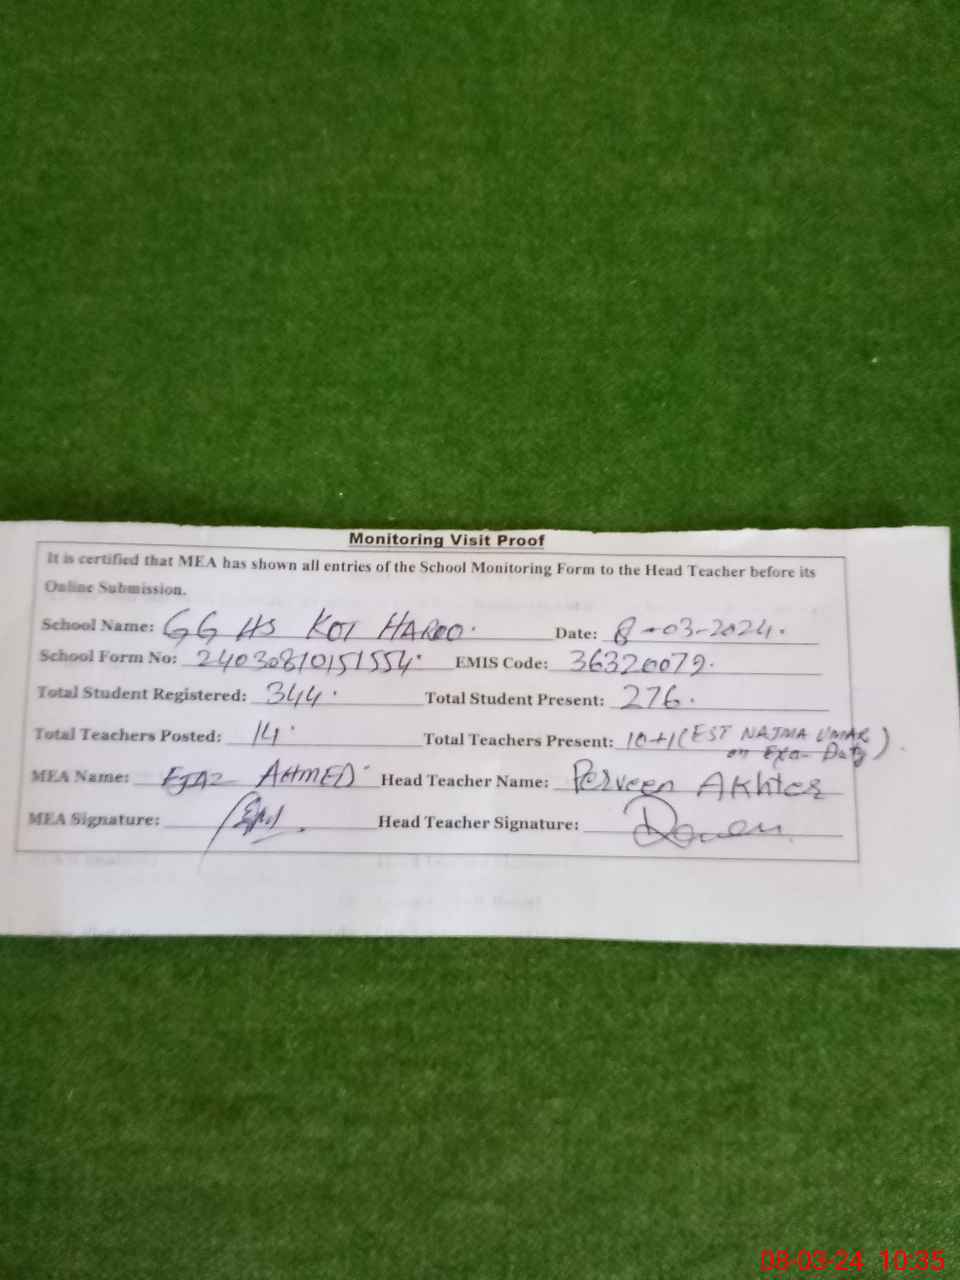 Monitoring Visit Proof
It is certified that MEA has shown all entries of the School Monitoring Form to the Head Teacher before its
Online Submission.
School Name: GG HS KOT HAROO. Date: 8-03-2024.
School Form No: 24030810151554. EMIS Code: 36320079.
Total Student Registered: 344. Total Student Present: 276.
Total Teachers Posted: 14. Total Teachers Present: 10+1 (EST NAJMA UMAR
on Exa- Duty).
MEA Name: EJAZ AHMED Head Teacher Name: Perveen Akhter
MEA Signature: Head Teacher Signature:
08-03-24 10:35